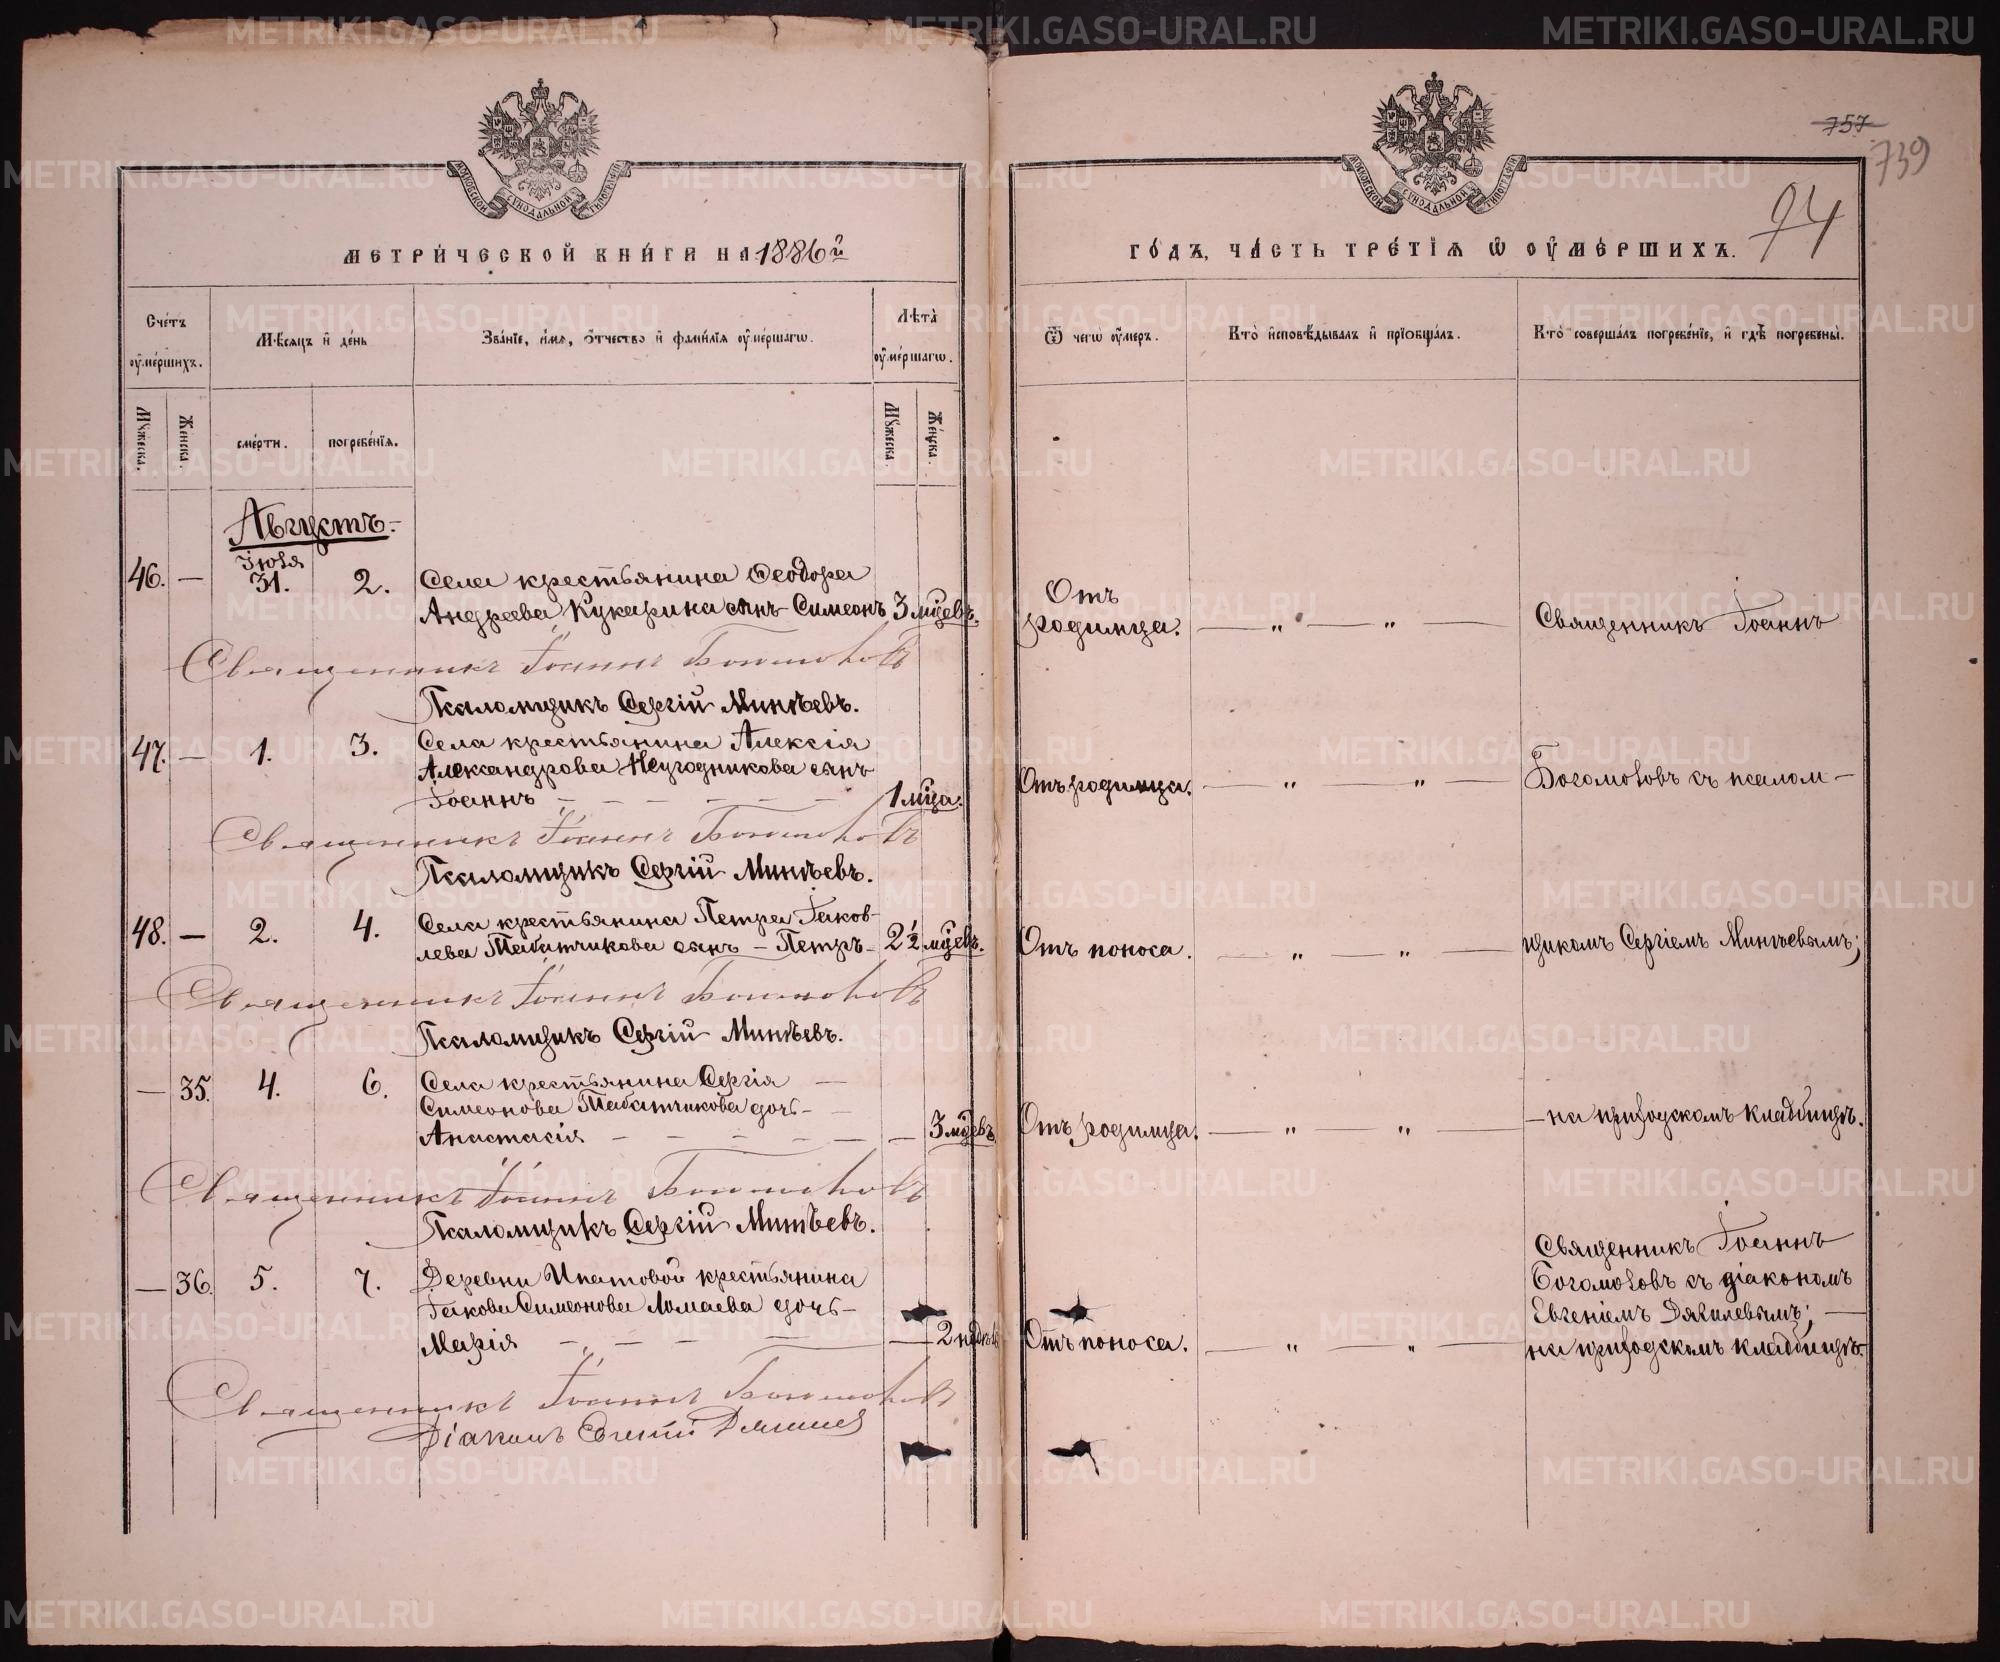 МОСКОВСКОЙ СѴНОДАЛЬНОЙ ТИПОГРАФІИ
МЕТРИ́ЧЕСКОЙ КНИ́ГИ НА 1886й
Сче́тъ ᲂу҆ме́ршихъ.
Мѣ́сяцъ и҆ де́нь
Зва́нїе, и҆́мѧ, ѻ҆́тчество и҆ фами́лїѧ ᲂу҆ме́ршагѡ.
Лѣта̀ ᲂу҆ме́ршагѡ.
Мꙋ́жеска.
Же́нска.
сме́рти.
погребе́нїѧ.
Мꙋ́жеска.
Же́нска.
Августъ.
46. — Іюля 31. 2. Села крестьянина Ѳеодора
Андреева Кукарина сынъ Симеонъ 3 мцевъ.
Священникъ Іоаннъ Богомоловъ
Псаломщикъ Сергій Минѣевъ.
47. — 1. 3. Села крестьянина Алексія
Александрова Неугодникова сынъ
Іоаннъ — 1 мца.
Священникъ Іоаннъ Богомоловъ
Псаломщикъ Сергій Минѣевъ.
48. — 2. 4. Села крестьянина Петра Іаков-
лева Табатчикова сынъ — Петръ — 2 ½ мцевъ.
Священникъ Іоаннъ Богомоловъ
Псаломщикъ Сергій Минѣевъ.
— 35. 4. 6. Села крестьянина Сергія —
Симеонова Табатчикова дочь —
Анастасія — 3 мцевъ
Священникъ Іоаннъ Богомоловъ
Псаломщикъ Сергій Минѣевъ.
— 36. 5. 7. Деревни Ипатовой крестьянина
Іакова Симеонова Ломаева дочь —
Марія — 2 недѣль
Священникъ Іоаннъ Богомоловъ
Діаконъ Евгеній
МОСКОВСКОЙ СѴНОДАЛЬНОЙ ТИПОГРАФІИ
757
739
94
ГО́ДЪ, ЧА́СТЬ ТРЕ́ТЇѦ Ѡ҆ ОУ҆МЕ́РШИХЪ.
Ѿ чегѡ̀ ᲂу҆́меръ.
Кто̀ и҆сповѣ́дывалъ и҆ прїѻбща́лъ.
Кто̀ соверша́лъ погребе́нїе, и҆ гдѣ̀ погребены̀.
Отъ
родимца. — „ — „ — Священникъ Іоаннъ
Отъ родимца. — „ — „ — Богомоловъ съ псалом —
Отъ поноса. — „ — „ — щикомъ Сергіемъ Минѣевымъ;
Отъ родимца. — „ — „ — — на приходскомъ кладбищѣ.
Священникъ Іоаннъ
Богомоловъ съ діакономъ
Евгеніемъ Дягилевымъ; —
Отъ поноса. — „ — „ — на приходскомъ кладбищѣ.
METRIKI.GASO-URAL.RU